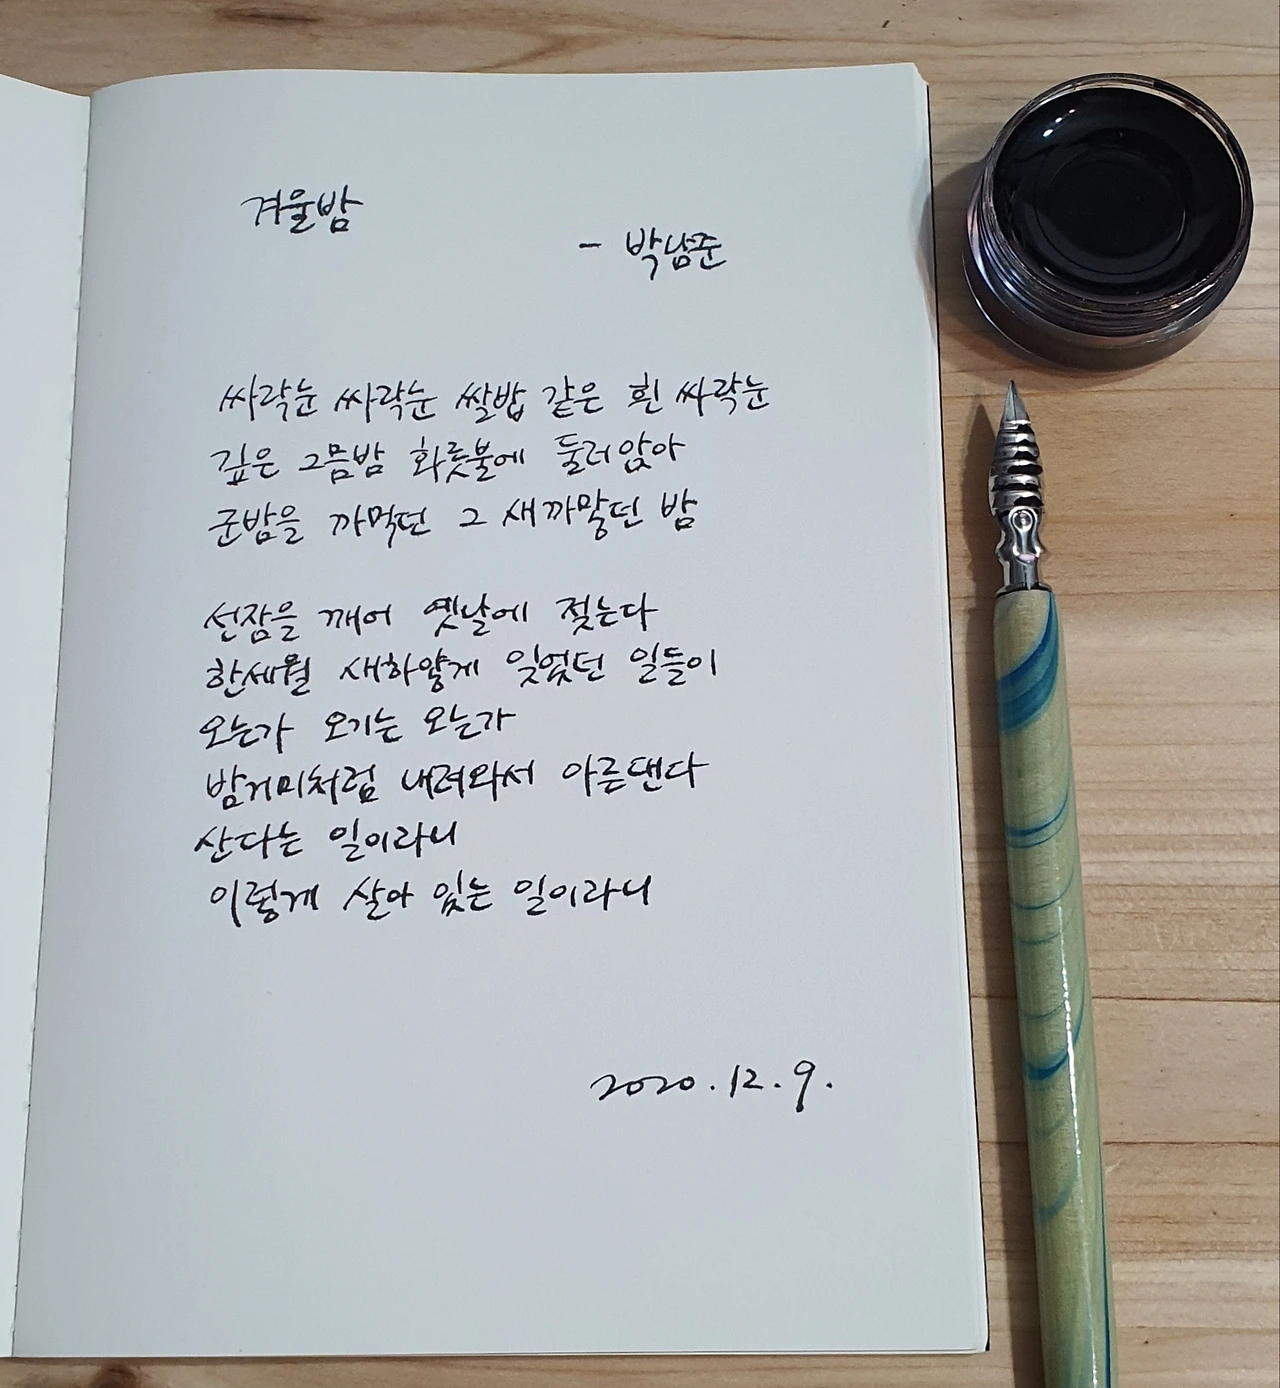 겨울밤
- 박남준
싸락눈 싸락눈 쌀밥 같은 흰 싸락눈
깊은 그믐밤 화롯불에 둘러앉아
군밤을 까먹던 그 새까맣던 밤
선잠을 깨어 옛날에 젖는다
한세월 새하얗게 잊었던 일들이
오는가 오기는 오는가
밤거미처럼 내려와서 아른댄다
산다는 일이라니
이렇게 살아 있는 일이라니
2020.12.9.